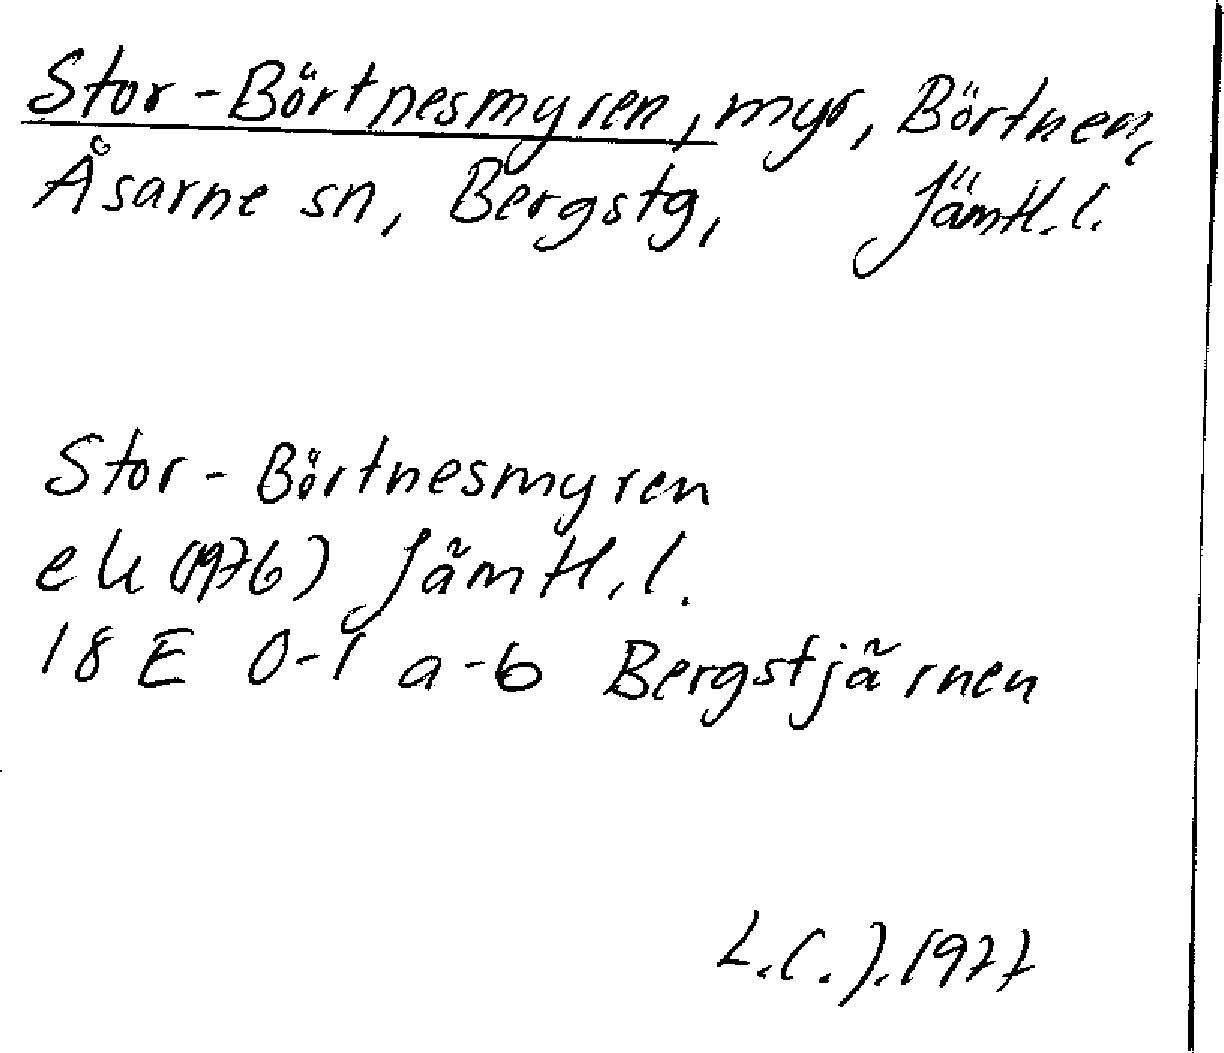 Stor-Börtnesmyren, myr, Börtnen,
Åsarne sn, Bergstg, Jämtl. l.
Stor-Börtnesmyren
ek (1976) Jämtl. l.
18 E 0-1 a-b Bergstjärnen
L.C.J. 1977